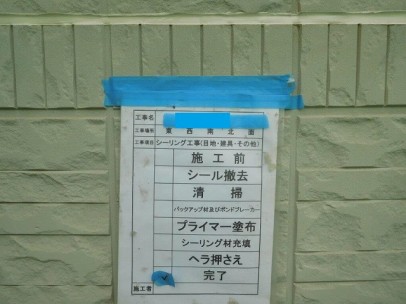 工事名
工事場所 東 西 南 北 面
工事項目 シーリング工事(目地・建具・その他)
施工前
シール撤去
清掃
バックアップ材及びボンドブレーカー
プライマー塗布
シーリング材充填
ヘラ押さえ
完了
施工者